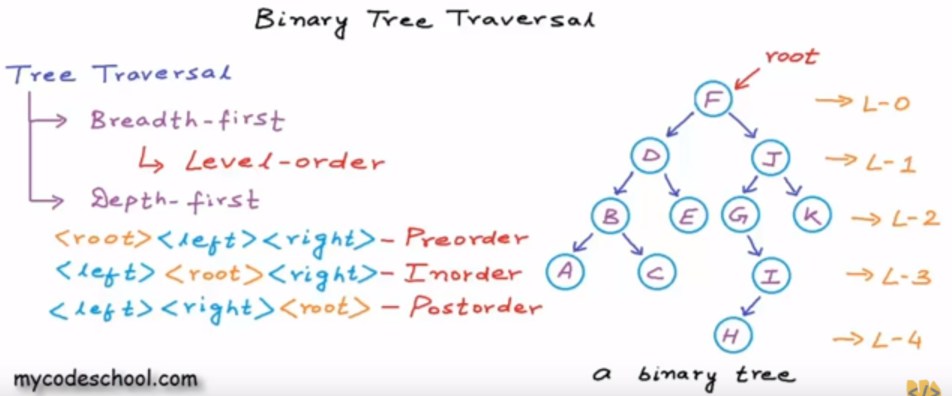 Binary Tree Traversal
Tree Traversal
→ Breadth-first
↳ Level-order
→ Depth-first
<root><left><right> - Preorder
<left><root><right> - Inorder
<left><right><root> - Postorder
root
F → L-0
D J → L-1
B E G K → L-2
A C I → L-3
H → L-4
a binary tree
mycodeschool.com